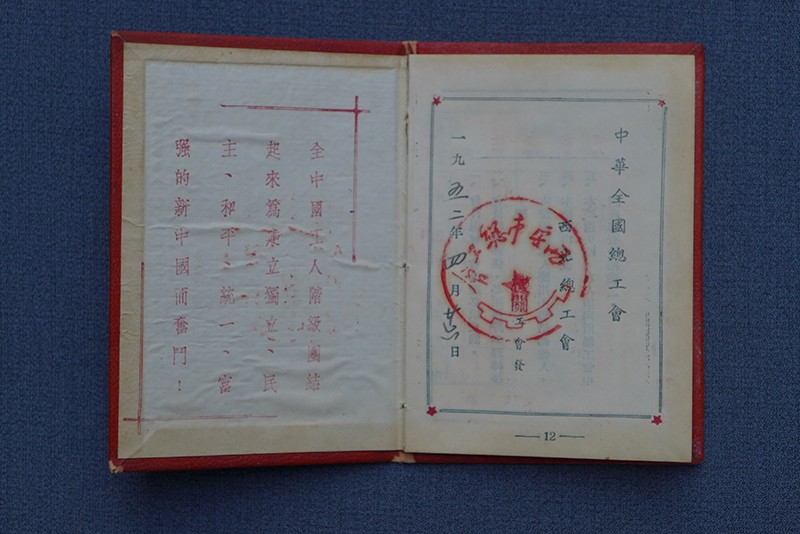 中華全國總工會
西北總工會
機關工會發
一九五二年四月廿六日
西安市總工會
12
全中國工人階級團結
起來爲建立獨立、民
主、和平、統一、富
强的新中國而奮鬥!